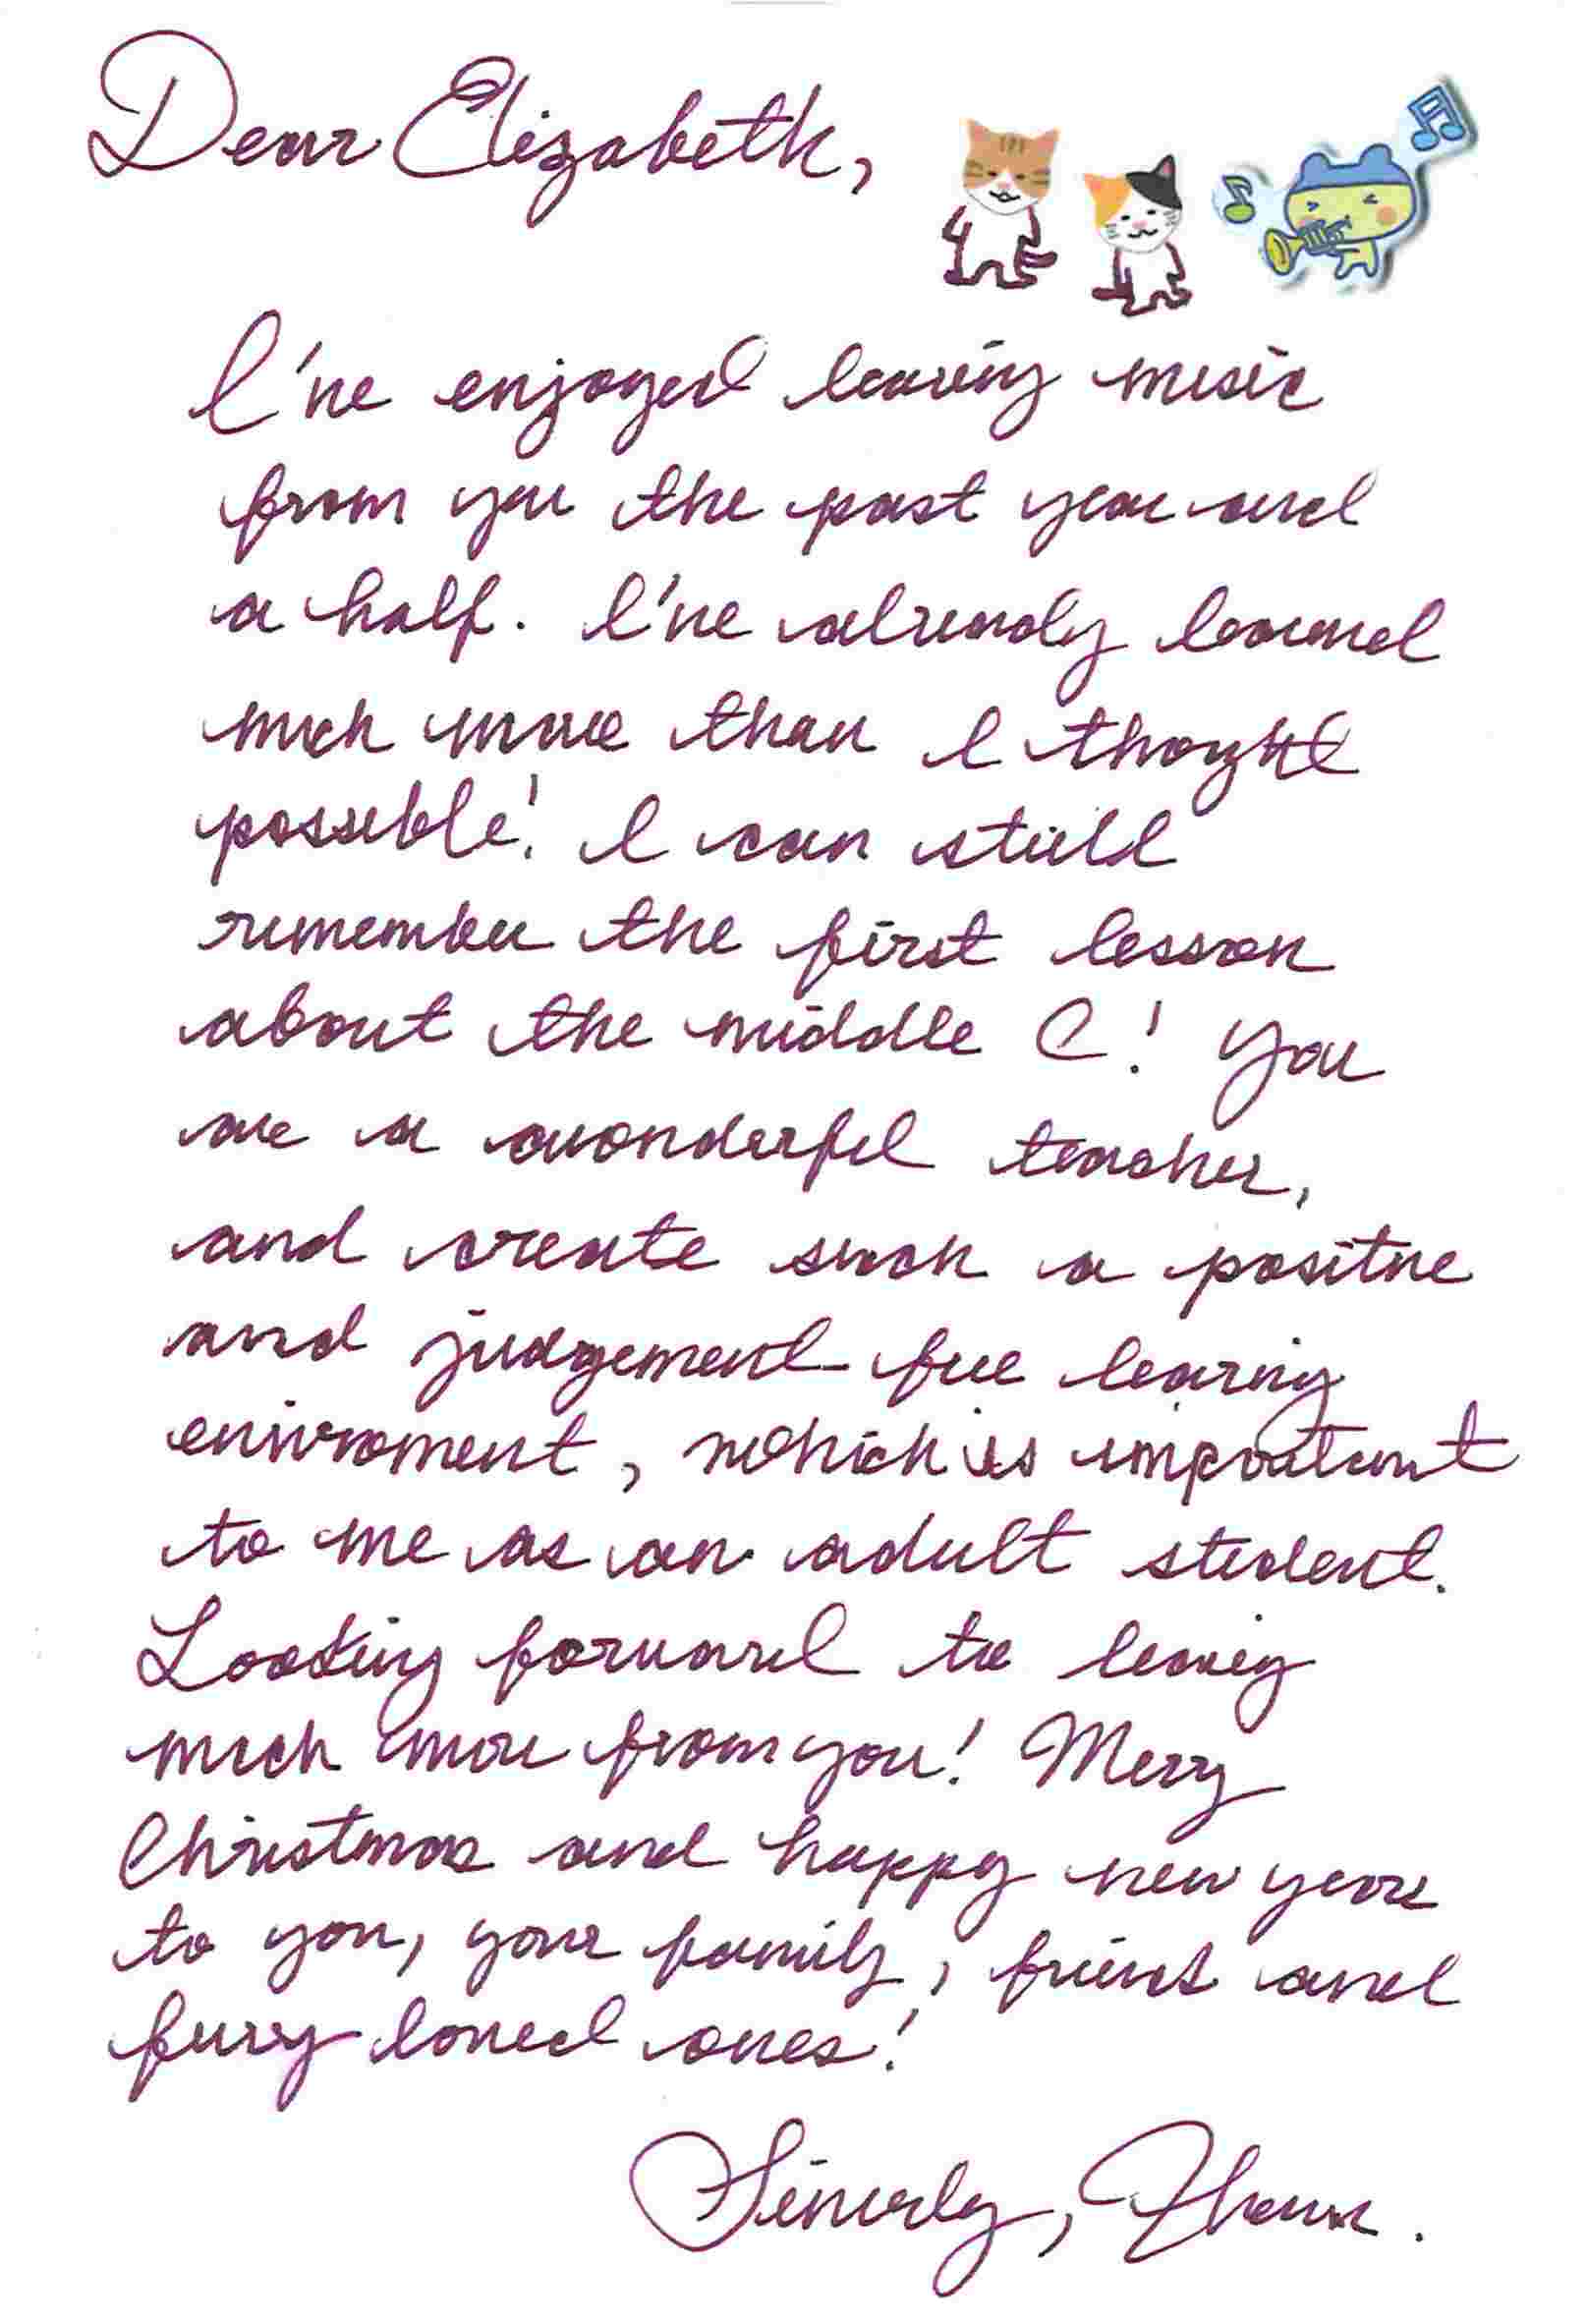 Dear Elizabeth,
I've enjoyed learing music
from you the past year and
a half. I've already learned
much more than I thought
possible! I can still
remember the first lesson
about the middle C! You
are a wonderful teacher,
and create such a positive
and judgement-free learing
enviroment, which is important
to me as an adult student.
Looking forward to learing
much more from you! Merry
Christmas and happy new year
to you, your family, friends and
furry loved ones!
Sincerly,